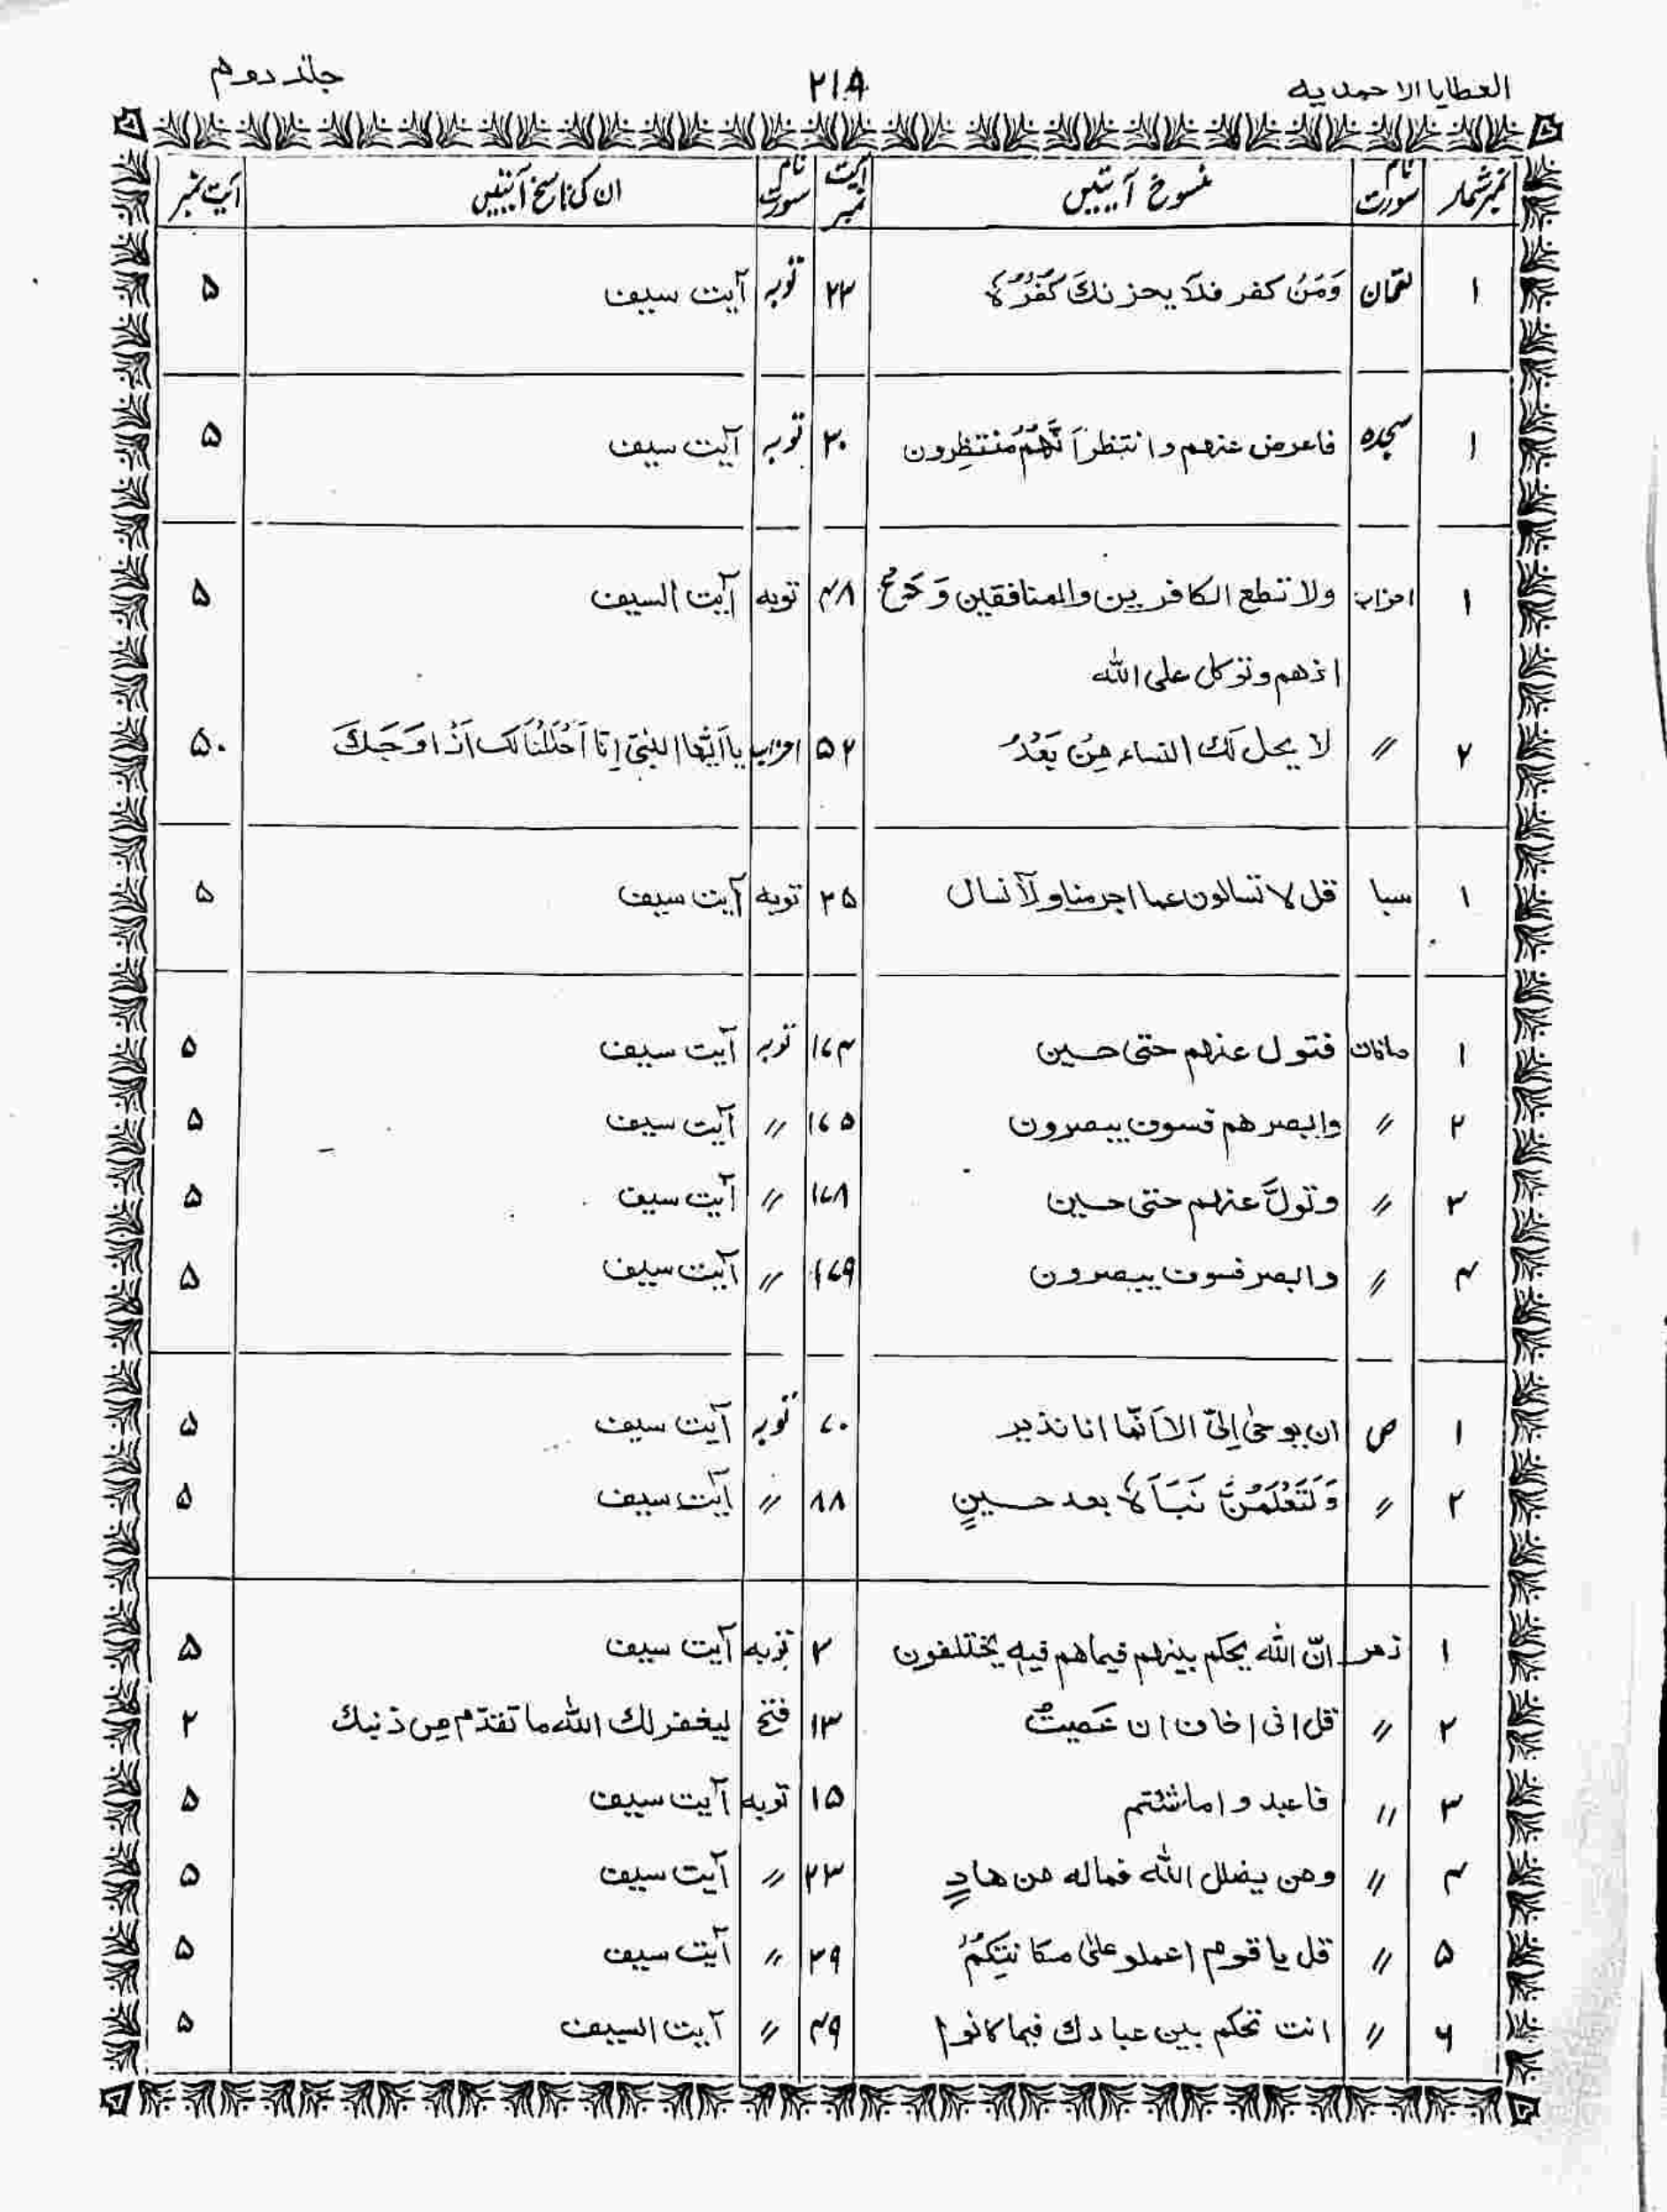 العطایا الاحمدیہ ۲۱۸ جلد دوم
نمبر شمار نام سورت منسوخ آیتیں آیت نمبر نام سورت ان کی ناسخ آیتیں آیت نمبر
۱ لقمان وَمَنْ کفر فلَا یحزنكَ کُفْرُہٗ ۲۳ توبہ آیت سیف ۵
۱ سجدہ فاعرض عنہم وانتظر اَنَّہُمْ مُنتظِرون ۳۰ توبہ آیت سیف ۵
۱ احزاب ولا تطع الکافرین والمنافقین وَدَعْ ۴۸ توبہ آیت السیف ۵
اذھم وتوکل علی اللہ
۲ // لا یحل لَكَ النساء مِنْ بَعْدُ ۵۲ احزاب یا اَیُّھا النبیّ اِنَّا اَحْلَلْنَا لَکَ اَزْاوَجَكَ ۵۰
۱ سبا قل لا تسالون عما اجرمنا ولَا نسال ۲۵ توبہ آیت سیف ۵
۱ صافات فتول عنہم حتی حین ۱۷۴ توبہ آیت سیف ۵
۲ // وابصرھم فسوف یبصرون ۱۷۵ // آیت سیف ۵
۳ // وتولَّ عنہم حتی حین ۱۷۸ // آیت سیف ۵
۴ // وابصر فسوف یبصرون ۱۷۹ // آیت سیف ۵
۱ ص ان یوحیٰ اِلیّ الا اَنّما انا نذیر ۷۰ توبہ آیت سیف ۵
۲ // وَلَتَعْلَمُنَّ نَبَاَہٗ بعد حینٍ ۸۸ // آیت سیف ۵
۱ زمر انّ اللہ یحکم بینہم فیماھم فیہ یختلفون ۳ توبہ آیت سیف ۵
۲ // قل انی اخاف ان عَصیتُ ۱۳ فتح لیغفرلك اللہ ما تقدّم مِن ذنبك ۲
۳ // فاعبدوا ماشئتم ۱۵ توبہ آیت سیف ۵
۴ // ومن یضلل اللہ فمالہ من ھادٍ ۲۳ // آیت سیف ۵
۵ // قل یا قوم اعملو علیٰ مکانتِکُمْ ۳۹ // آیت سیف ۵
۶ // انت تحکم بین عبادك فیما کانوا ۴۹ // آیت السیف ۵